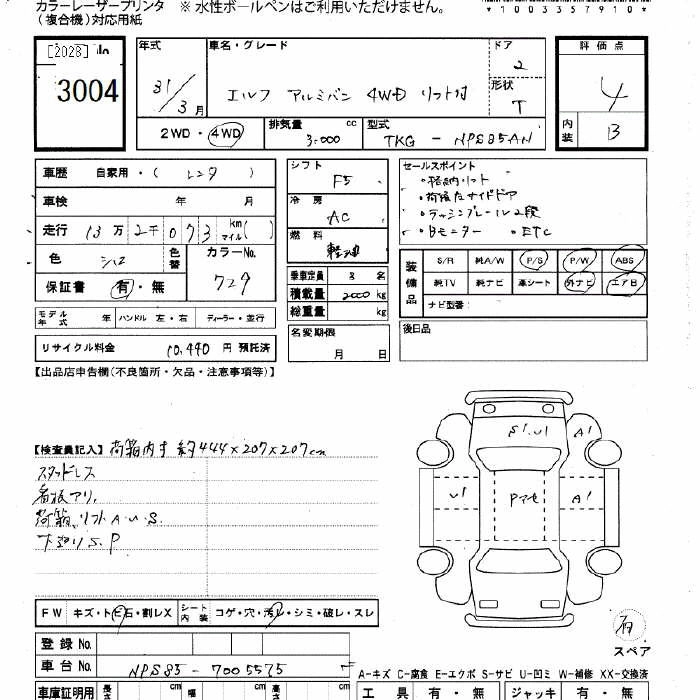 カラーレーザープリンタ ※ 水性ボールペンはご利用いただけません。
(複合機)対応用紙
*100357910*
[2023]
3004
年式 31/3月
車名・グレード エルフ アルミバン 4WD リフト付
ドア 2
形状 T
評価点 4
内装 B
2WD・4WD
排気量 3.000 cc
型式 TKG - NPS85AN
車歴 自家用・( レンタ )
車検 年 月
走行 13万2千073 km マイル ( )
色 シロ 色替 カラーNo. 729
保証書 有・無
シフト F5
冷房 AC
燃料 軽油
乗車定員 3 名
積載量 2000 kg
総重量 kg
セールスポイント
・格納リフト
・荷箱左サイドドア
・ラッシングレール2段
・Bモニター ・ETC
装備品 S/R 純A/W P/S P/W ABS
純TV 純ナビ 革シート 外ナビ エアB
ナビ型番:
モデル年式 年 ハンドル 左・右 ディーラー・並行
名変期限 月 日
後日品
リサイクル料金 10,440 円 預託済
【出品店申告欄(不良箇所・欠品・注意事項等)】
【検査員記入】 荷箱内寸 約444×207×207cm
スタッドレス
看板アリ
荷箱、リフトA.U.S.
下廻りS.P
S1.U1 A1
U1 Pマセ A1
有
スペア
FW キズ・トビ石・割レX シート内装 コゲ・穴・汚レ・シミ・破レ・スレ
登録 No.
車台 No. NPS85 - 7005575
A-キズ C-腐食 E-エクボ S-サビ U-凹ミ W-補修 XX-交換済
車庫証明用 長さ cm 幅 cm 高さ cm
工具 有・無 ジャッキ 有・無